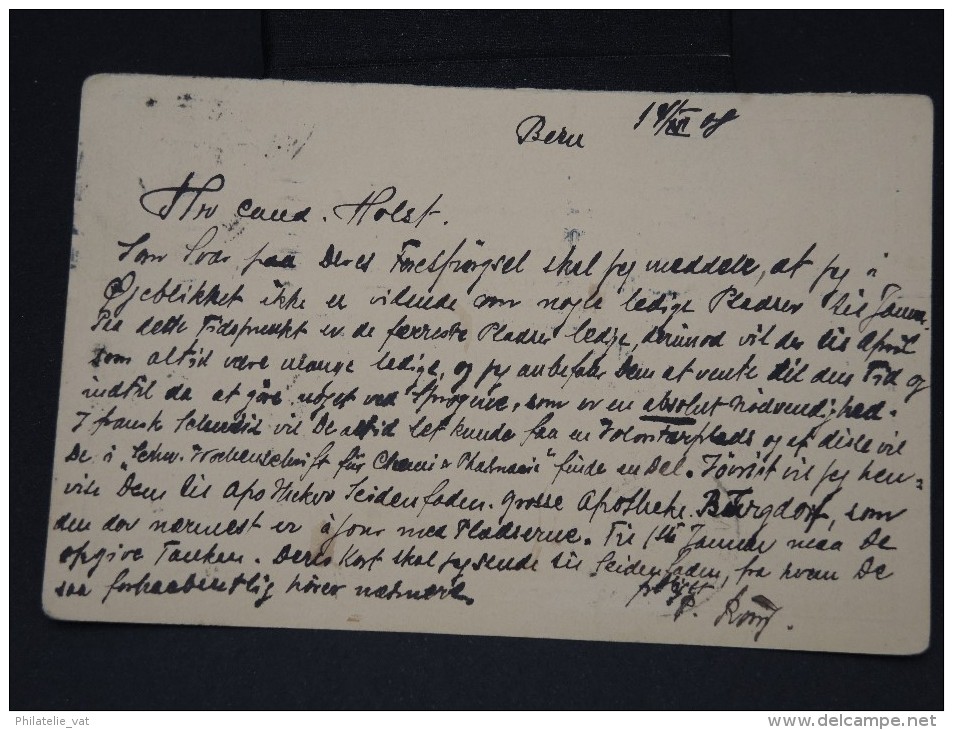 Bern
Hr cand. Holst.
Som Svar paa Deres Forespörgsel skal jeg meddele, at jeg i
Øjeblikket ikke er vidende om nogle ledige Pladser til Januar.
Paa dette Tidspunkt er de færreste Pladser ledige, derimod vil der til April
som altid være mange ledige, og jeg anbefaler Dem at vente til den Tid og
indtil da at göre noget ved Sprogene, som er en absolut Nödvendighed.
I fransk Schweiz vil De altid let kunde faa en Volontørplads og af disse vil
De i "Schw. Wochenschrift für Chemie & Pharmacie" finde en Del. Jövrist vil jeg hen=
vise Dem til Apotheker Seidenfaden. Grosse Apotheke. Burgdorf, som
den der nærmest er à jour med Pladserne. Til 1ste Januar maa De
opgive Tanken. Deres Kort skal jeg sende til Seidenfaden, fra hvem De
saa forhaabentlig hörer nærmere.
P.
Philatelie_vat
www.delcampe.net